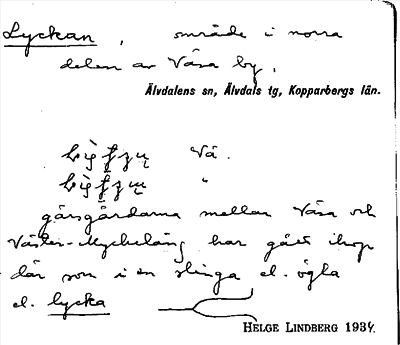 Lyckan, område i norra
delen av Våsa by.
Älvdalens sn, Älvdals tg, Kopparbergs län.
Vå.
"
gärsgårdarna mellan Våsa och
Väster-Myckeläng har gått ihop
där som i en slinga el. ögla
el. lycka
HELGE LINDBERG 1934.